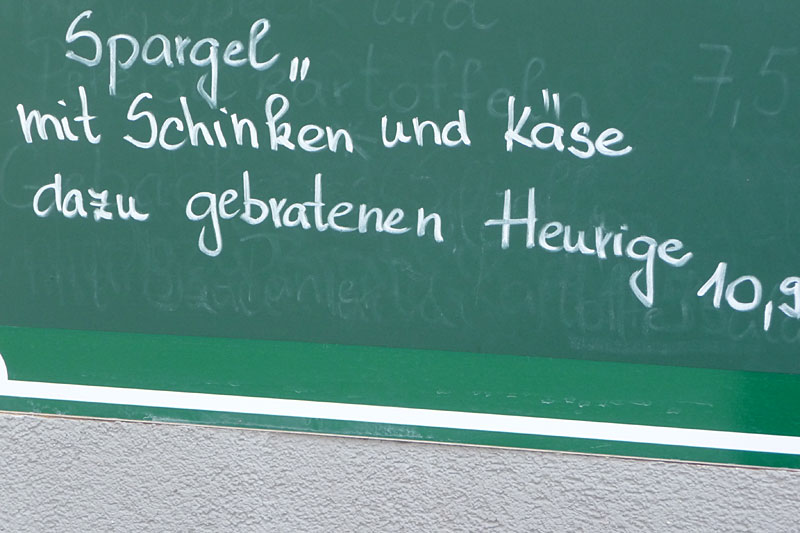 Spargel"
mit Schinken und Käse
dazu gebratenen Heurige
10,9